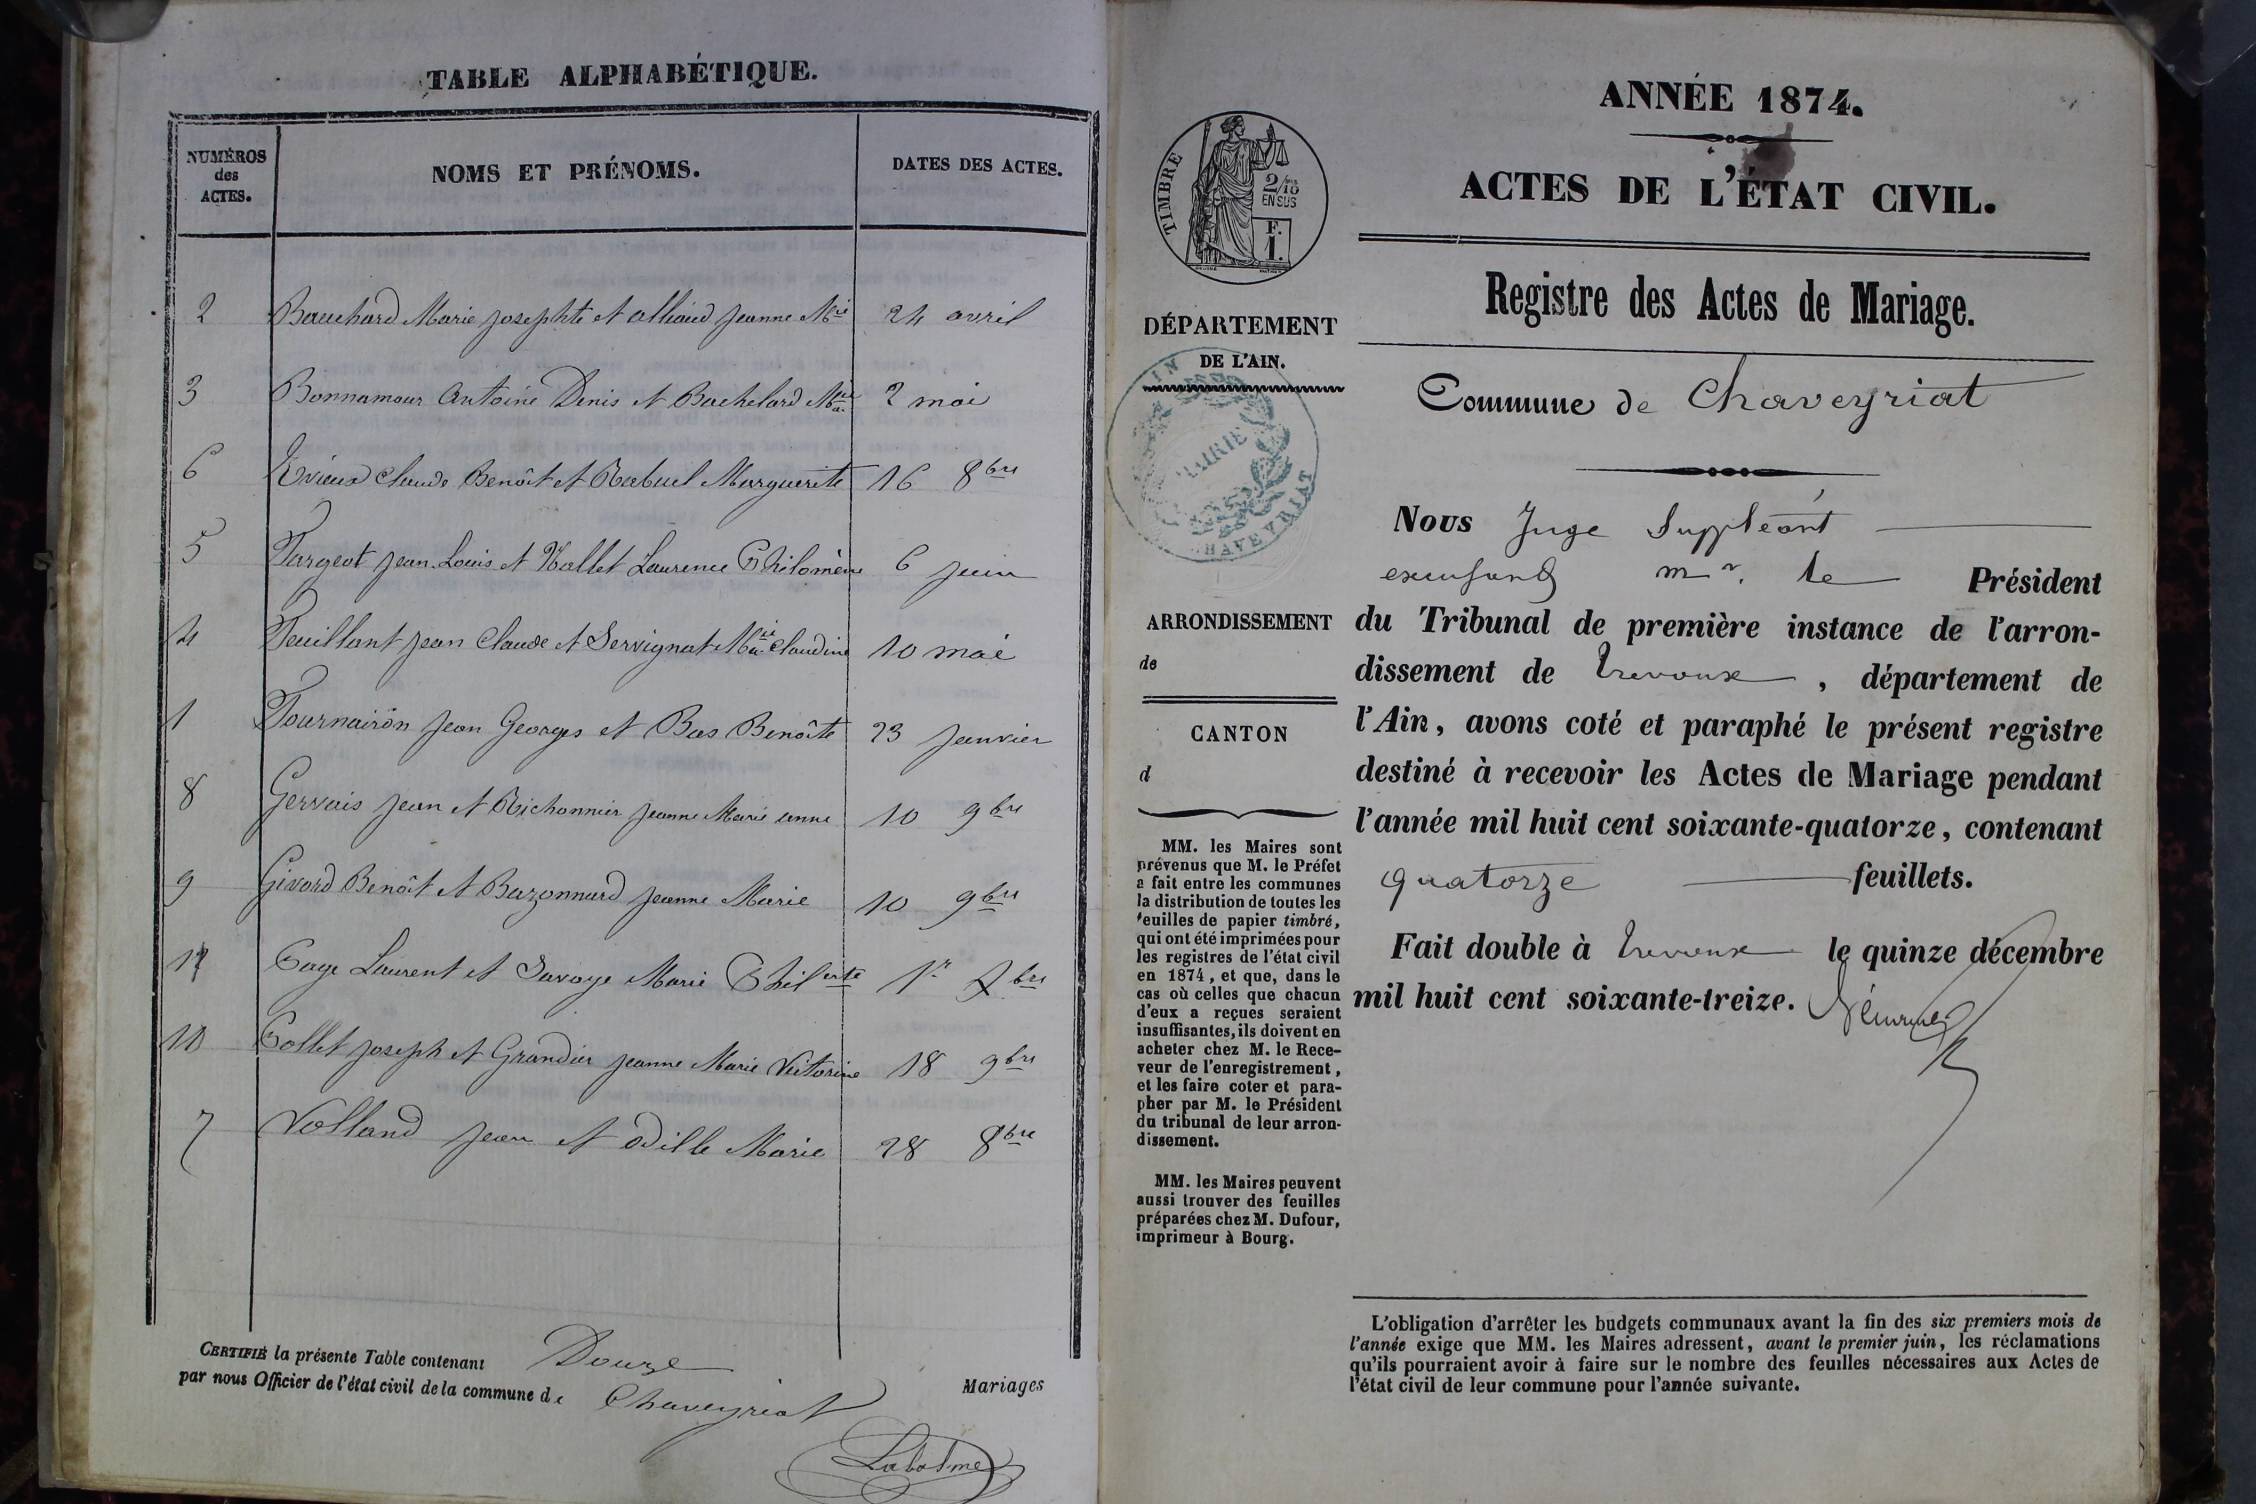 TABLE ALPHABÉTIQUE.
NUMÉROS des ACTES.
NOMS ET PRÉNOMS.
DATES DES ACTES.
2 Bouchard Marie Josephte et alliaud Jeanne Mie 24 avril
3 Bonnamour Antoine Denis et Bachelard Mie 2 mai
6 Evieux Claude Benôit et Rabuel Marguerite 16 8bre
5 Fargeot Jean Louis et Nallet Laurence Philomène 6 juin
4 Feuillant Jean Claude et Servignat Mie Claudine 10 mai
1 Fournairon Jean Georges et Bas Benôite 23 Janvier
8 Gervais Jean et Richonnier Jeanne Marie anne 10 9bre
9 Givord Benôit et Bazonnard Jeanne Marie 10 9bre
11 Page Laurent et Savoye Marie Philerte 1r Xbre
10 Pollet Joseph et Grandier Jeanne Marie Victorine 18 9bre
7 Volland Jean et Odille Marie 28 8bre
CERTIFIÉ la présente Table contenant Douze Mariages
par nous Officier de l'état civil de la commune de Chaveyriat
Labalme
ANNÉE 1874.
ACTES DE L'ÉTAT CIVIL.
TIMBRE
2/10
EN SUS
F.
1.
Registre des Actes de Mariage.
DÉPARTEMENT
DE L'AIN.
MAIRIE
CHAVEYRIAT
AIN
Commune de Chaveyriat
ARRONDISSEMENT
de
CANTON
d
MM. les Maires sont
prévenus que M. le Préfet
a fait entre les communes
la distribution de toutes les
feuilles de papier timbré,
qui ont été imprimées pour
les registres de l'état civil
en 1874, et que, dans le
cas où celles que chacun
d'eux a reçues seraient
insuffisantes, ils doivent en
acheter chez M. le Rece-
veur de l'enregistrement,
et les faire coter et para-
pher par M. le Président
du tribunal de leur arron-
dissement.
MM. les Maires peuvent
aussi trouver des feuilles
préparées chez M. Dufour,
imprimeur à Bourg.
Nous Juge Suppléant
excusant mr. le Président
du Tribunal de première instance de l'arron-
dissement de Trevoux, département de
l'Ain, avons coté et paraphé le présent registre
destiné à recevoir les Actes de Mariage pendant
l'année mil huit cent soixante-quatorze, contenant
quatorze feuillets.
Fait double à Trevoux le quinze décembre
mil huit cent soixante-treize.
L'obligation d'arrêter les budgets communaux avant la fin des six premiers mois de
l'année exige que MM. les Maires adressent, avant le premier juin, les réclamations
qu'ils pourraient avoir à faire sur le nombre des feuilles nécessaires aux Actes de
l'état civil de leur commune pour l'année suivante.